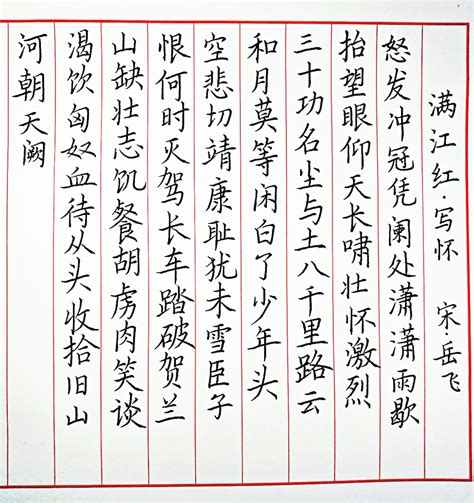 满江红·写怀 宋·岳飞
怒发冲冠凭阑处潇潇雨歇
抬望眼仰天长啸壮怀激烈
三十功名尘与土八千里路云
和月莫等闲白了少年头
空悲切靖康耻犹未雪臣子
恨何时灭驾长车踏破贺兰
山缺壮志饥餐胡虏肉笑谈
渴饮匈奴血待从头收拾旧山
河朝天阙